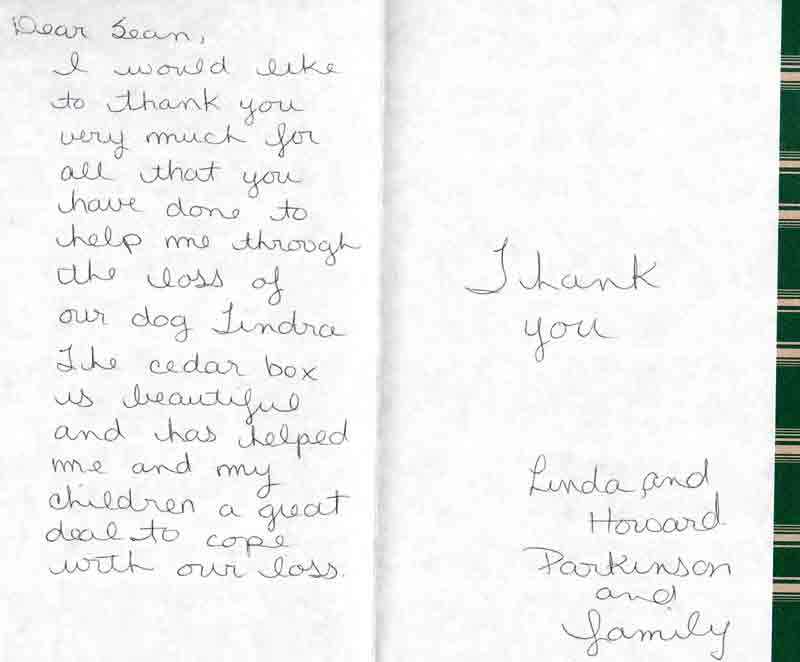 Dear Sean,
I would like
to thank you
very much for
all that you
have done to
help me through
the loss of
our dog Tindra
The cedar box
is beautiful
and has helped
me and my
children a great
deal to cope
with our loss.
Thank
you
Linda and
Howard
Parkinson
and
family